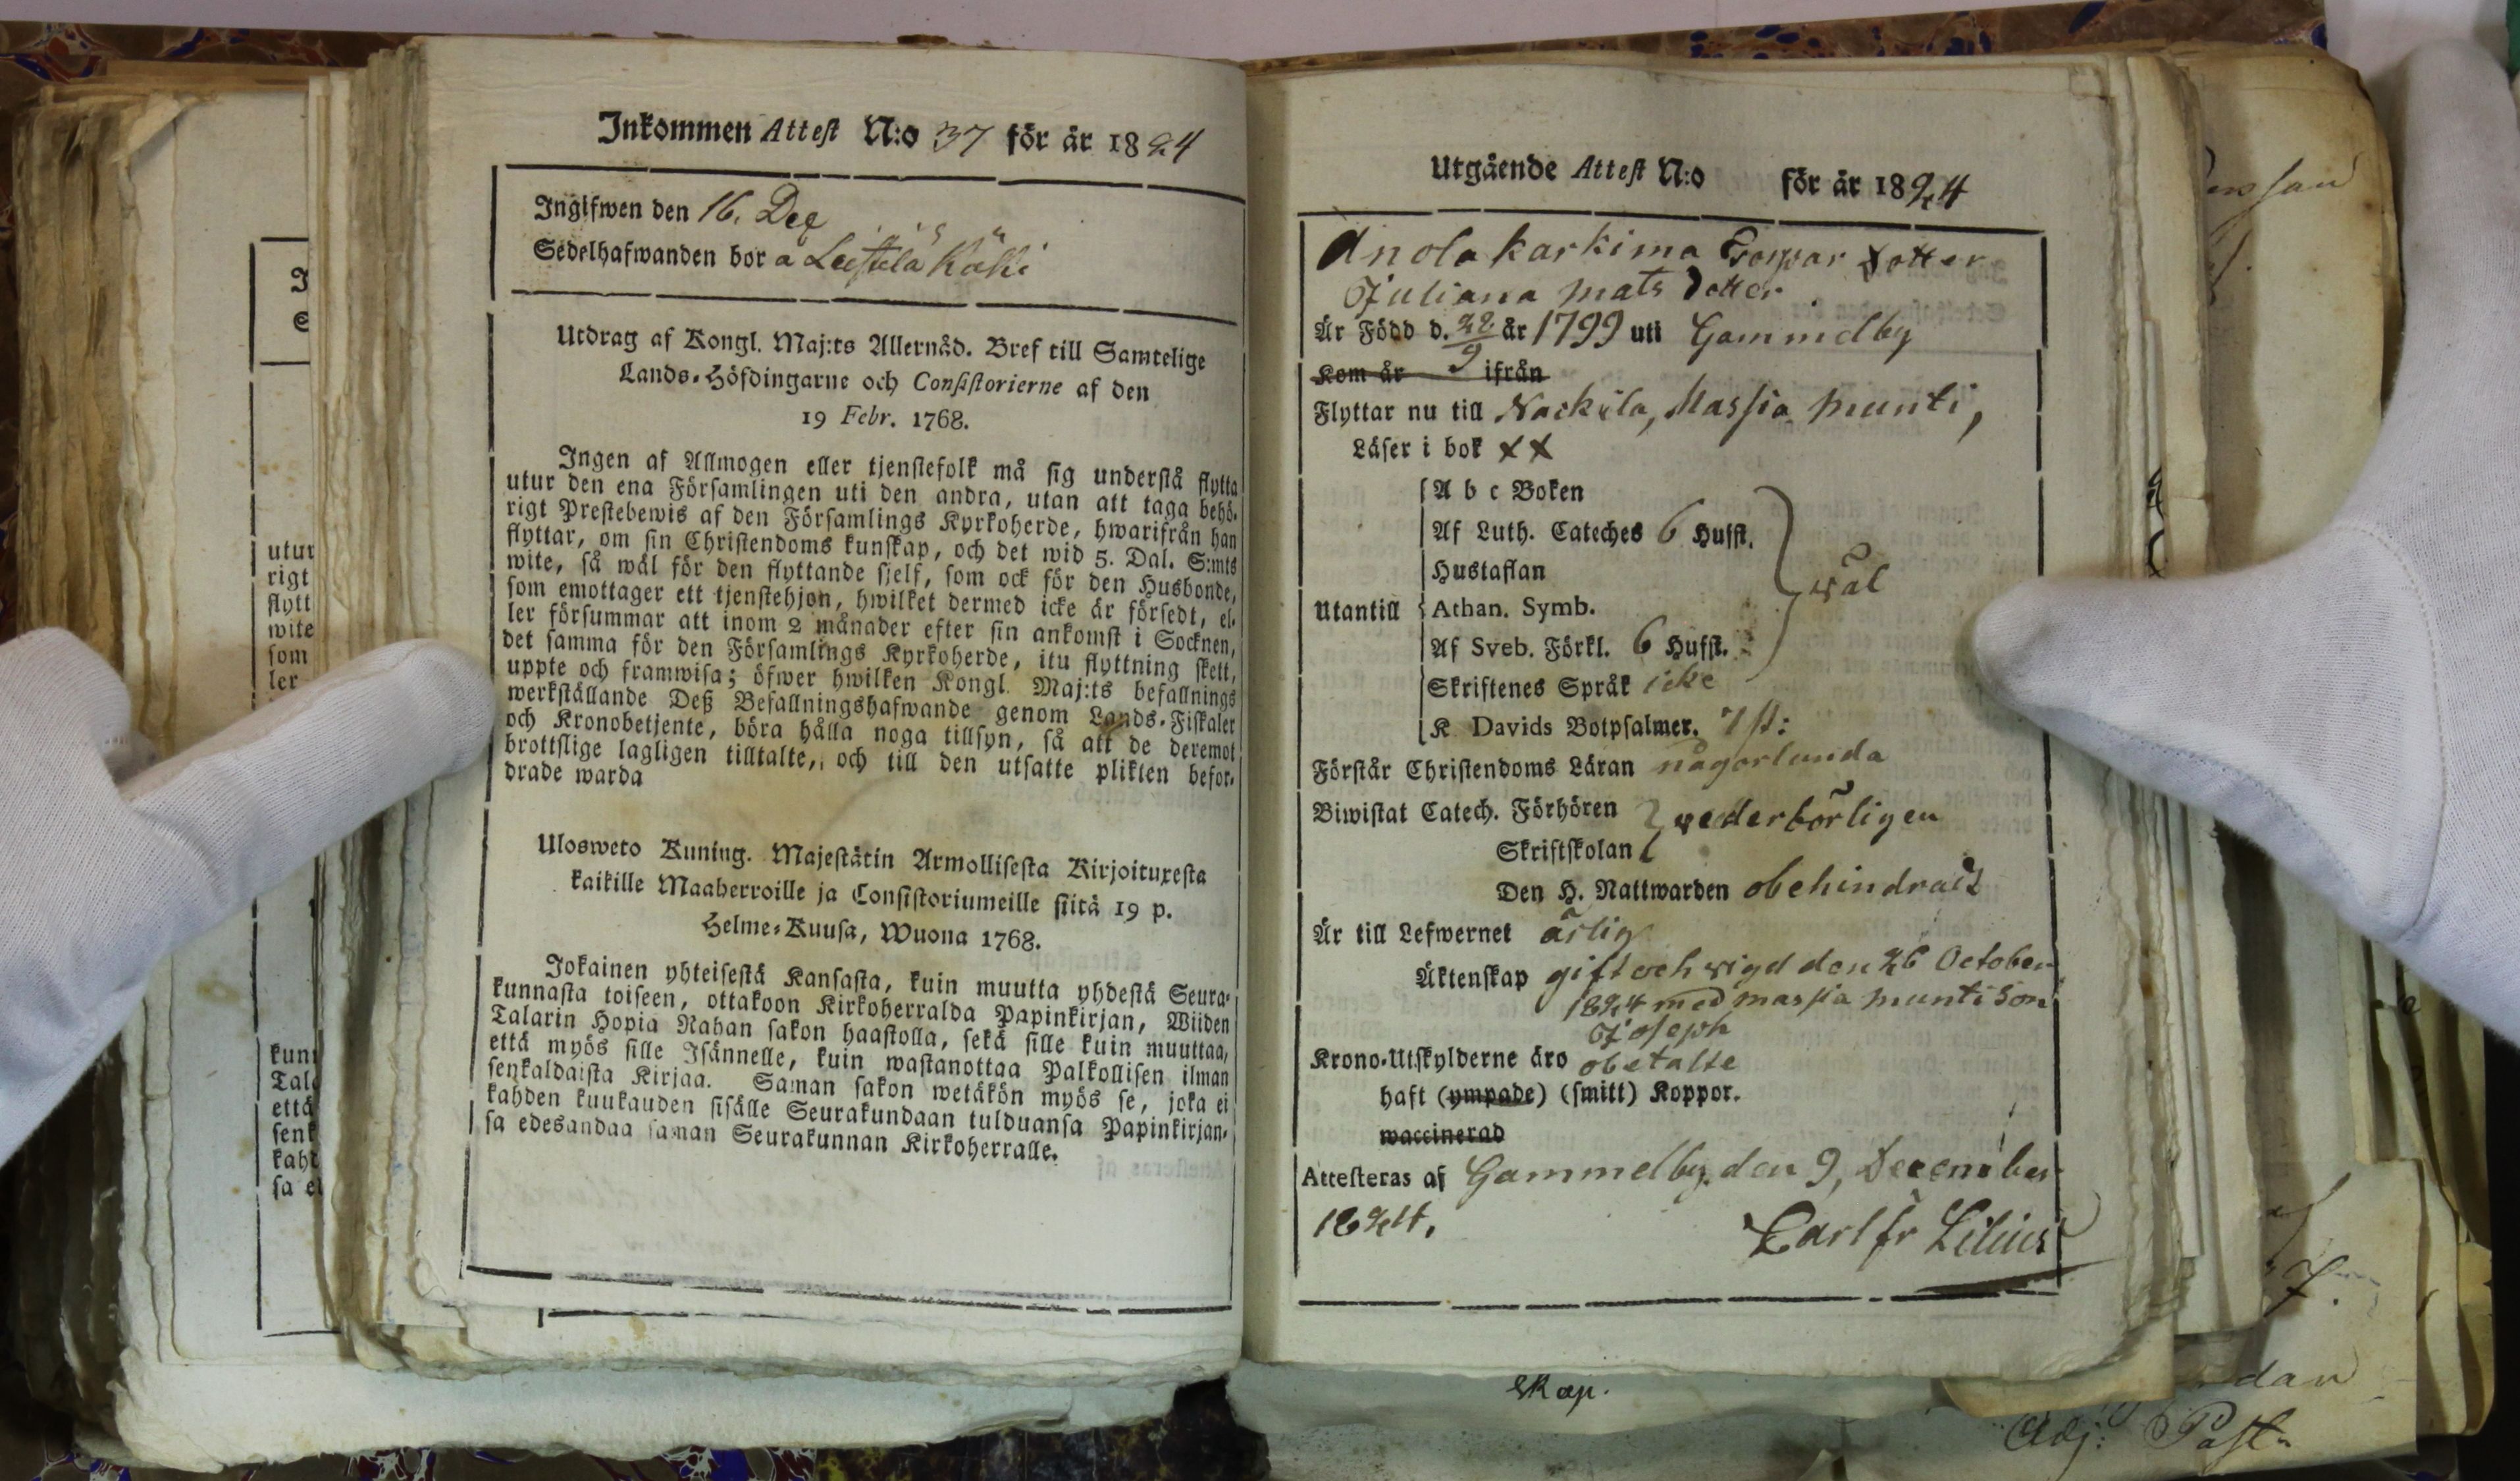 Inkommen Attest N:o 37 för år 1824
Ingifwen den 16. Dec
Sedelhafwanden bor å Leistilä Käkki
Utdrag af Kongl. Maj:ts Allernåd. Bref till Samtelige
Lands-Höfdingarne och Consistorierne af den
19 Febr. 1768.
Ingen af Allmogen eller tjenstefolk må sig understå flytta
utur den ena Församlingen uti den andra, utan att taga behö-
rigt Prestebewis af den Församlings Kyrkoherde, hwarifrån han
flyttar, om sin Christendoms kunskap, och det wid 5. Dal. S:mts
wite, så wäl för den flyttande sjelf, som ock för den Husbonde,
som emottager ett tjenstehjon, hwilket dermed icke är försedt, el-
ler försummar att inom 2 månader efter sin ankomst i Socknen,
det samma för den Församlings Kyrkoherde, itu flyttning skett,
uppte och framwisa; öfwer hwilken Kongl. Maj:ts befallnings
werkställande Deß Befallningshafwande genom Lands-Fiskaler
och Kronobetjente, böra hålla noga tillsyn, så att de deremot
brottslige lagligen tilltalte, och till den utsatte plikten befor-
drade warda
Ulosweto Kuning. Majestätin Armollisesta Kirjoituxesta
kaikille Maaherroille ja Consistoriumeille siitä 19 p.
Helme-Kuusa, Wuona 1768.
Jokainen yhteisestä Kansasta, kuin muutta yhdestä Seura-
kunnasta toiseen, ottakoon Kirkoherralda Papinkirjan, Wiiden
Talarin Hopia Rahan sakon haastolla, sekä sille kuin muuttaa,
että myös sille Isännelle, kuin wastanottaa Palkollisen ilman
senkaldaista Kirjaa. Saman sakon wetäkön myös se, joka ei
kahden kuukauden sisälle Seurakundaan tulduansa Papinkirjan-
sa edesandaa saman Seurakunnan Kirkoherralle.
Utgående Attest N:o för år 1824
Anola karkima dotter
Juliana mats dotter
Är Född d. 22/9 år 1799 uti Gammelby
Kom år ifrån
Flyttar nu till Nackila, Massia munti,
Läser i bok xx
A b c Boken
Af Luth. Cateches 6 Hufst.
Hustaflan
wäl
Utantill Athan. Symb.
Af Sveb. Förkl. 6 Hufst.
Skriftenes Språk icke
K. Davids Botpsalmer. 7 st:
Förstår Christendoms Läran någorlunda
Biwistat Catech. Förhören wederbörligen
Skriftskolan
Den H. Nattwarden obehindrad
Är till Lefwernet ärlig
Äktenskap gift och wigd den 26 October
1824 med massia munti son
Joseph
Krono-Utskylderne äro obetalte
haft (ympade) (smitt) Koppor.
waccinerad
Attesteras af Gammelby. den 9, December
1824.
Carl fr Lilius
utur
rigt
flytt
wite
som
ler
kun
Tala
että
senk
kahd
sa e
dan
Adj: Past.